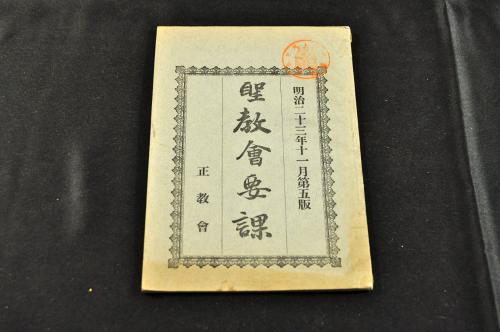 明治二十三年十一月第五版
聖教會要課
正教會